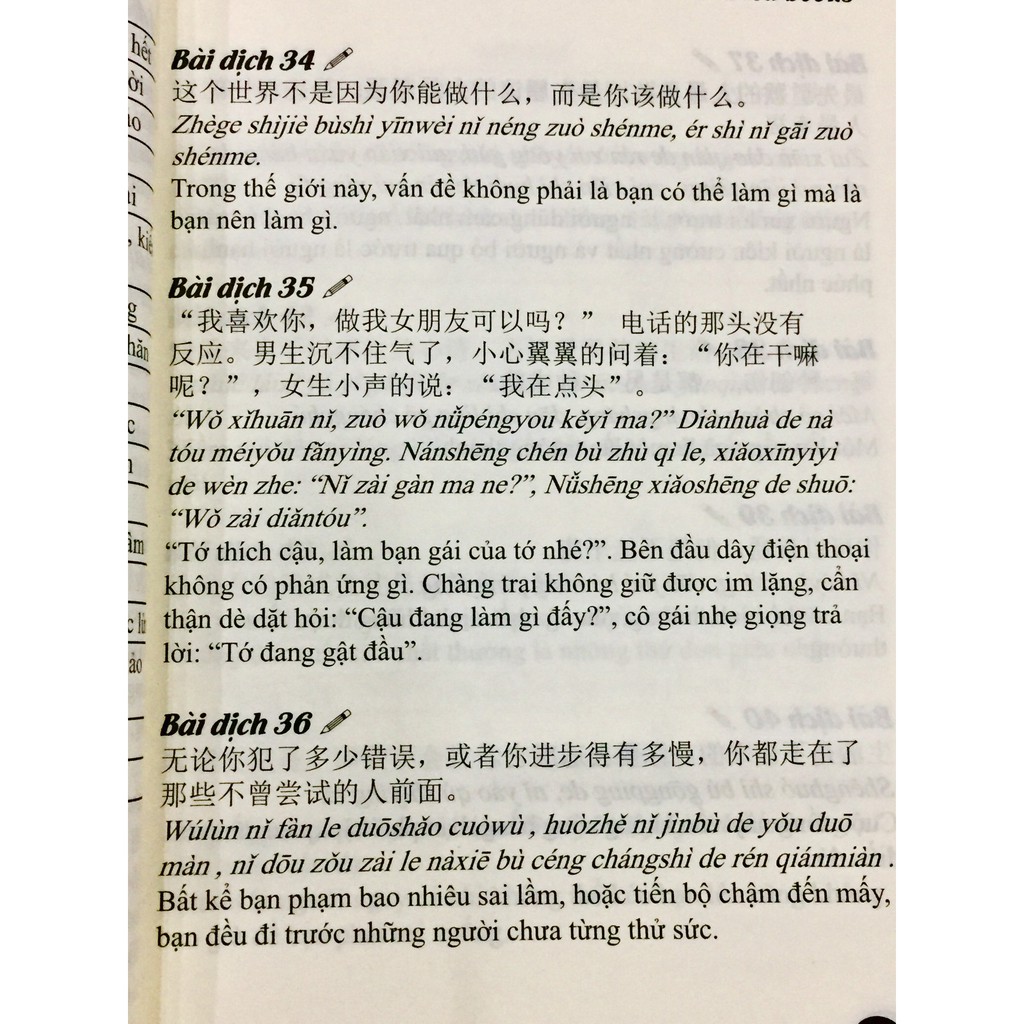 Bài dịch 34
这个世界不是因为你能做什么，而是你该做什么。
Zhège shìjiè bùshì yīnwèi nǐ néng zuò shénme, ér shì nǐ gāi zuò
shénme.
Trong thế giới này, vấn đề không phải là bạn có thể làm gì mà là
bạn nên làm gì.
Bài dịch 35
“我喜欢你，做我女朋友可以吗？” 电话的那头没有
反应。男生沉不住气了，小心翼翼的问着：“你在干嘛
呢？”，女生小声的说：“我在点头”。
“Wǒ xǐhuān nǐ, zuò wǒ nǚpéngyou kěyǐ ma?” Diànhuà de nà
tóu méiyǒu fǎnyìng. Nánshēng chén bù zhù qì le, xiǎoxīnyìyì
de wèn zhe: “Nǐ zài gàn ma ne?”, Nǚshēng xiǎoshēng de shuō:
“Wǒ zài diǎntóu”.
“Tớ thích cậu, làm bạn gái của tớ nhé?”. Bên đầu dây điện thoại
không có phản ứng gì. Chàng trai không giữ được im lặng, cẩn
thận dè dặt hỏi: “Cậu đang làm gì đấy?”, cô gái nhẹ giọng trả
lời: “Tớ đang gật đầu”.
Bài dịch 36
无论你犯了多少错误，或者你进步得有多慢，你都走在了
那些不曾尝试的人前面。
Wúlùn nǐ fàn le duōshǎo cuòwù , huòzhě nǐ jìnbù de yǒu duō
màn , nǐ dōu zǒu zài le nàxiē bù céng chángshì de rén qiánmiàn .
Bất kể bạn phạm bao nhiêu sai lầm, hoặc tiến bộ chậm đến mấy,
bạn đều đi trước những người chưa từng thử sức.